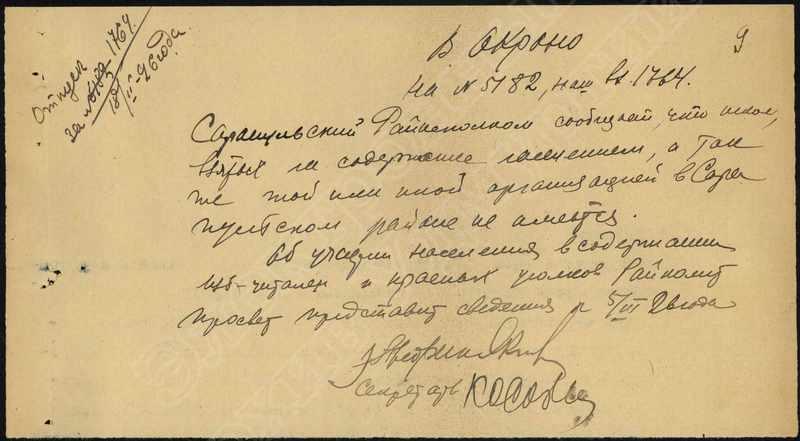 Отпуск
за № 1764.
18/III-26 года.
9
В Окроно
На № 5182, наш вх. 1764.
Сарапульский Райисполком сообщает, что школ,
взятых на содержание населением, а так
же той или иной организацией в Сара
пульском районе не имеется.
Об участии населения в содержании
изб-читален и красных уголков Райполит
просвет представит сведения к 5/III 26 года
Секретарь